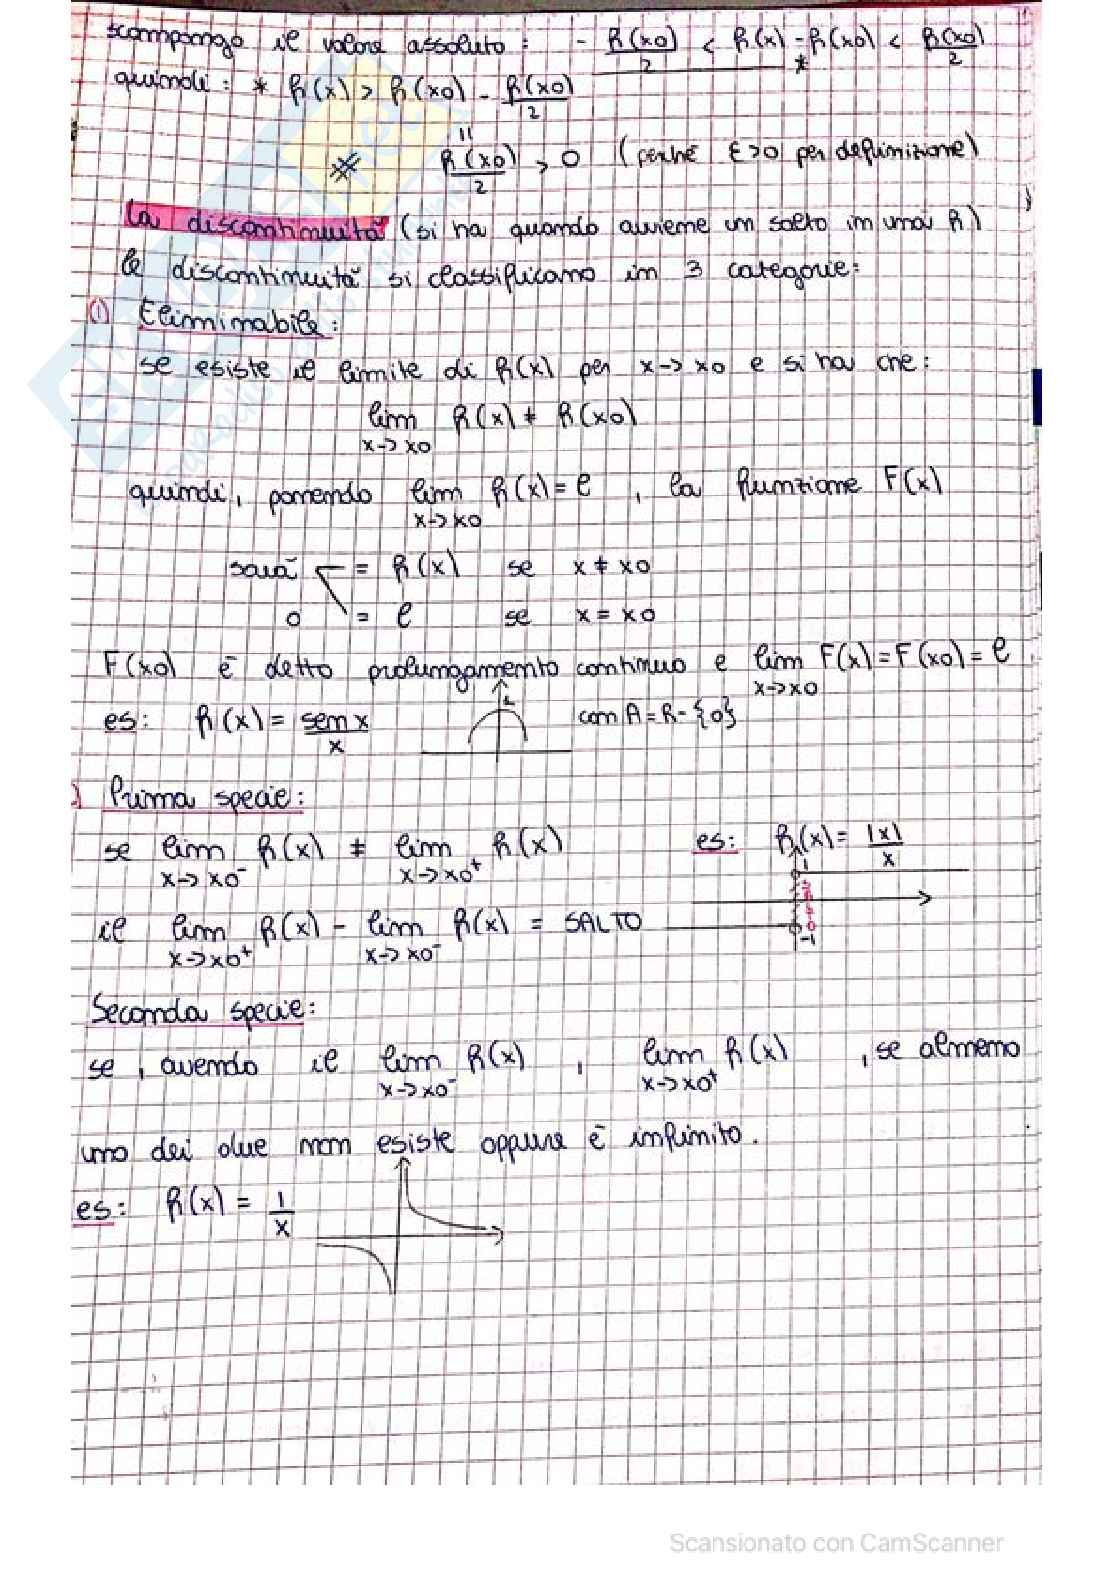 scompongo il valore assoluto: - f(x0)/2 < f(x) - f(x0) < f(x0)/2
quindi: * f(x) > f(x0) - f(x0)/2
"
* f(x0)/2 > 0 (perché ε>0 per definizione)
La discontinuità (si ha quando avviene un salto in una f)
le discontinuità si classificano in 3 categorie:
① Eliminabile:
se esiste il limite di f(x) per x→x0 e si ha che:
lim f(x) ≠ f(x0)
x→x0
quindi, ponendo lim f(x) = l , la funzione F(x)
x→x0
sarà = f(x) se x ≠ x0
o = l se x = x0
F(x0) è detto prolungamento continuo e lim F(x) = F(x0) = l
x→x0
es: f(x) = sen x / x con A = R - {0}
Prima specie:
se lim f(x) ≠ lim f(x) es: f(x) = |x|/x
x→x0⁻ x→x0⁺
1
il lim f(x) - lim f(x) = SALTO
x→x0⁺ x→x0⁻
-1
Seconda specie:
se , avendo il lim f(x) , lim f(x) , se almeno
x→x0⁻ x→x0⁺
uno dei due non esiste oppure è infinito.
es: f(x) = 1/x
Scansionato con CamScanner